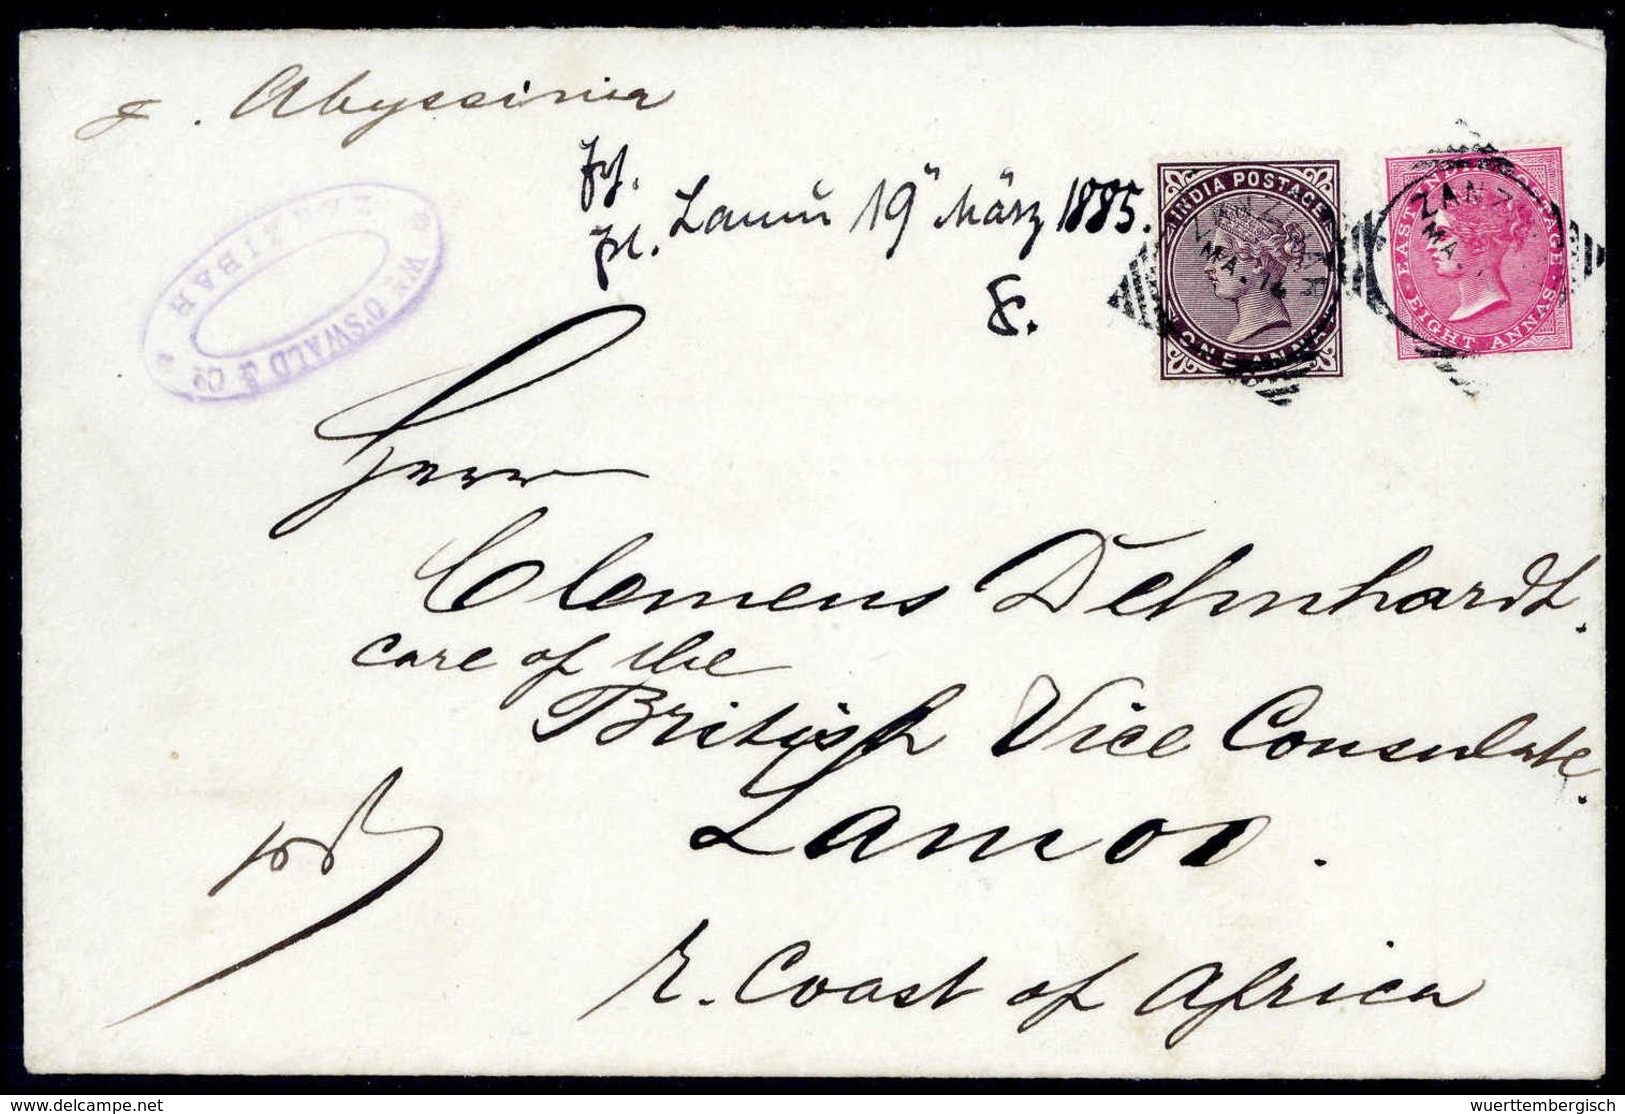 p. Abyssinia
Lamu 19" März 1885.
INDIA POSTAGE
ZANZIBAR
MA. 14
ONE ANNA
EAST INDIA POSTAGE
EIGHT ANNAS
ZANZ
MA.
Wm O'SWALD & Co
ZANZIBAR
Herrn
Clemens Dehnhardt.
care of the
British Vice Consulate.
Lamoo.
E. Coast of Africa
delcampe.net
wuerttembergisch